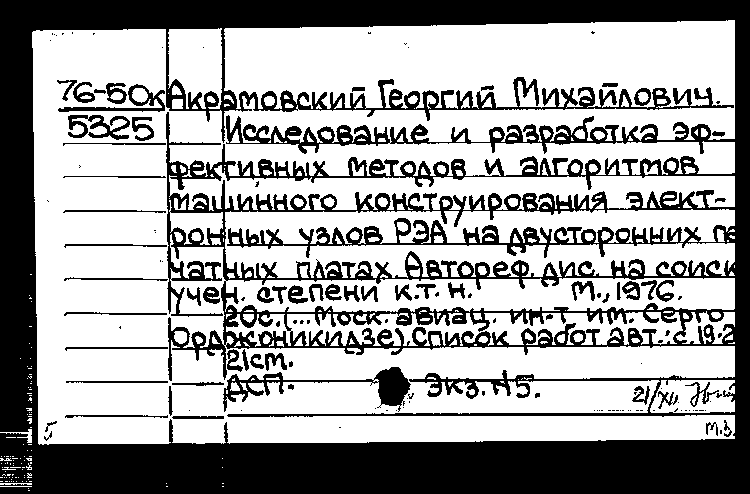 76-50к Акрамовский, Георгий Михайлович.
5325 Исследование и разработка эф-
фективных методов и алгоритмов
машинного конструирования элект-
ронных узлов РЭА на двусторонних пе
чатных платах. Автореф. дис. на соиск
учен. степени к.т.н. М., 1976.
20с. (... Моск. авиац. ин-т им. Серго
Орджоникидзе). Список работ авт.: с. 19-2
21см.
ДСП. Экз. №5.
21/XII
5 м.з.